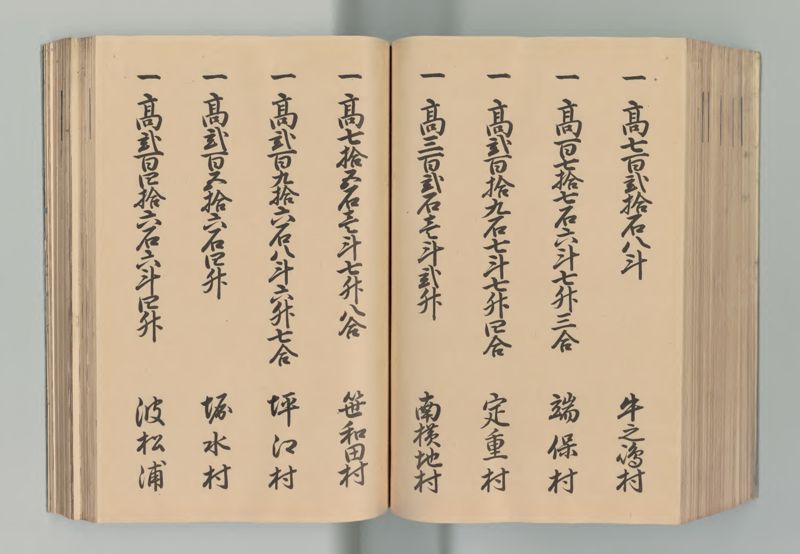 一 高七百弐拾石八斗 牛之嶋村
一 高百七拾七石六斗七升三合 端保村
一 高弐百拾九石七斗七升四合 定重村
一 高三百弐石壱斗弐升 南横地村
一 高七拾五石壱斗七升八合 笹和田村
一 高弐百九拾六石八斗六升七合 坪江村
一 高弐百五拾六石四升 堀水村
一 高弐百四拾六石六斗四升 波松浦